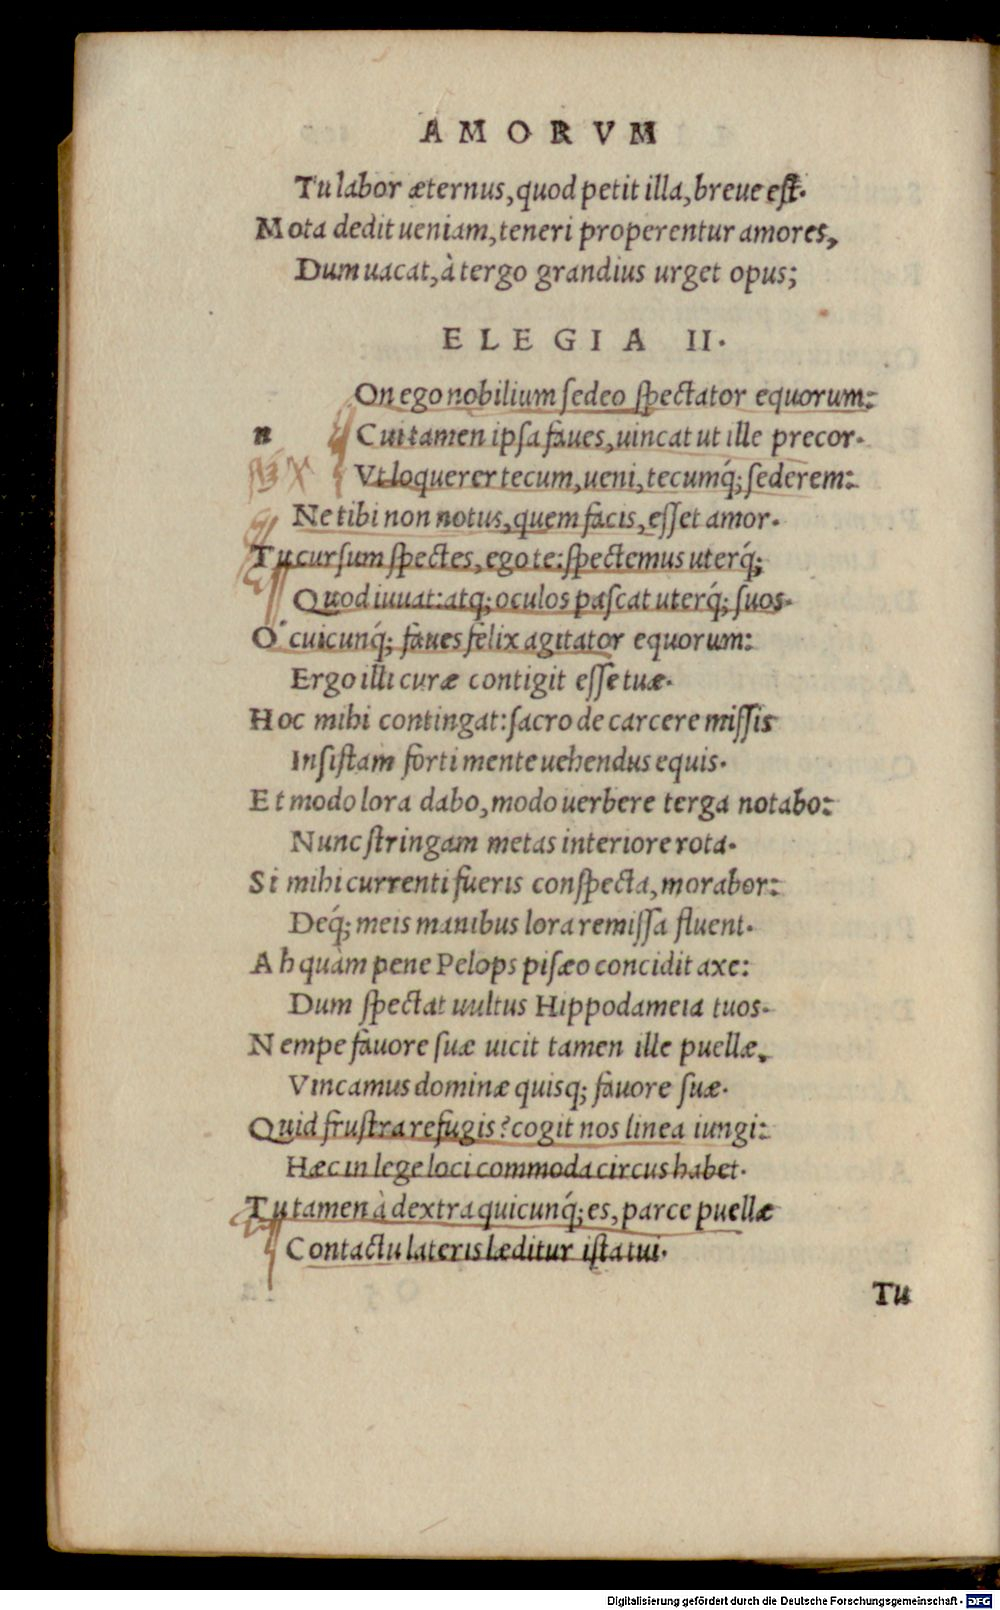 AMORVM
Tu labor æternus, quod petit illa, breue est.
Mota dedit ueniam, teneri properentur amores,
Dum uacat, à tergo grandius urget opus;
ELEGIA II.
On ego nobilium sedeo spectator equorum:
n Cui tamen ipsa faues, uincat ut ille precor.
Vt loquerer tecum, ueni, tecumq́; sederem:
Ne tibi non notus, quem facis, esset amor.
Tu cursum spectes, ego te: spectemus uterq́;
Quod iuuat: atq; oculos pascat uterq́; suos.
O' cuicunq́; faues felix agitator equorum:
Ergo illi curæ contigit esse tuæ.
Hoc mihi contingat: sacro de carcere missis
Insistam forti mente uehendus equis.
Et modo lora dabo, modo uerbere terga notabo:
Nunc stringam metas interiore rota.
Si mihi currenti fueris conspecta, morabor:
Deq́; meis manibus lora remissa fluent.
Ah quàm pene Pelops pisæo concidit axe:
Dum spectat uultus Hippodameia tuos.
Nempe fauore suæ uicit tamen ille puellæ,
Vincamus dominæ quisq; fauore suæ.
Quid frustra refugis? cogit nos linea iungi:
Hæc in lege loci commoda circus habet.
Tu tamen à dextra quicunq́; es, parce puellæ
Contactu lateris læditur ista tui.
Tu
Digitalisierung gefördert durch die Deutsche Forschungsgemeinschaft - DFG